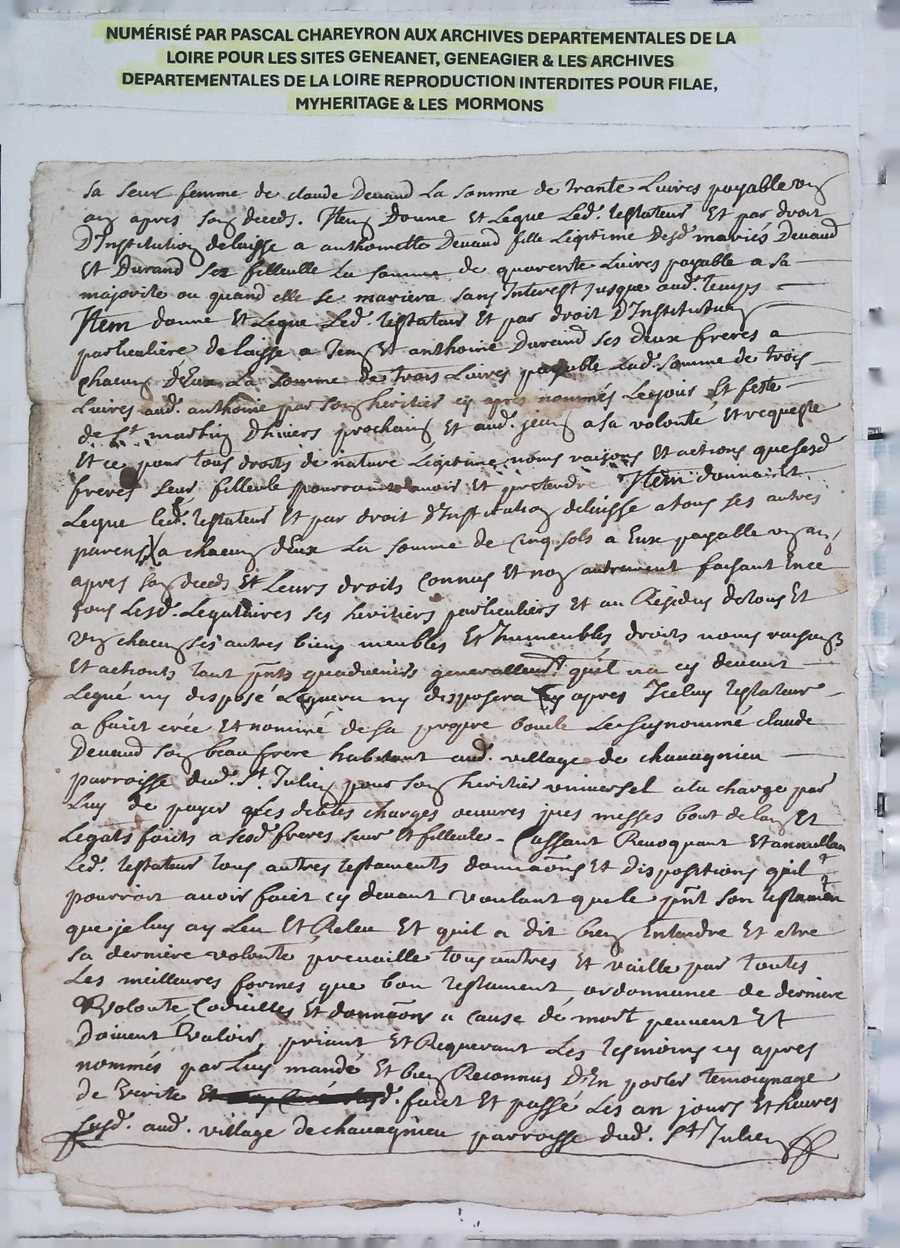 NUMÉRISÉ PAR PASCAL CHAREYRON AUX ARCHIVES DEPARTEMENTALES DE LA
LOIRE POUR LES SITES GENEANET, GENEAGIER & LES ARCHIVES
DEPARTEMENTALES DE LA LOIRE REPRODUCTION INTERDITES POUR FILAE,
MYHERITAGE & LES MORMONS
sa seur femme de claude Devaud La somme de trante Livres payable un
an apres son deceds. Item Donne Et Legue Led. testateur Et par droit
D'Institution delaisse a anthoinette Devaud fille Legitime desd. mariés Devaud
Et Durand sa filleulle La somme de quarente Livres payable a sa
majorite ou quand elle se mariera sans Interest jusque aud. temps
Item donne Et Legue Led. testateur Et par droit D'Institution
particuliere delaisse a Jean Et anthoine Durand ses deux freres a
chacun d'Eux La somme de trois Livres payable Lad. somme de trois
Livres aud. anthoine par son heritier cy apres nommés Le jour Et feste
de St. martin D'hivers prochain Et aud. jean a sa volonté Et requeste
Et ce pour tous droits de nature Legitime noms raisons Et actions que sesd
freres seur filleule pourroint avoir Et pretendre Item donne Et
Legue led. testateur Et par droit d'Institution delaisse a tous ses autres
parens a chacun d'Eux La somme de cinq sols a Eux payable un an
apres son deceds Et Leurs droits connus Et non autrement faisant En ce
tous Lesd. Legataires ses heritiers particuliers Et au Residus de tous Et
un chacun ses autres biens meubles Et Immeubles droits noms raisons
Et actions tant pnts qu'advenirs generallemt. qu'il n'a cy devant
Legué ny disposé Leguera ny disposera cy apres Iceluy testateur
a fait crée Et nommé de sa propre bouche Le susnommé claude
Devaud son beau frere habitant aud. village de chavagnieu
parroisse dud. St. Julien pour son heritier universel a la charge par
Luy de payer ses debtes charges oeuvres pies messes bout de l'an Et
Legats faicts a sesd. freres seur Et filleule - Cassant Revoquant Et annullan
Led. testateur tous autres testaments donnaõns Et Dispositions qu'il
pourroit avoir fait cy devant voulant que le pnt son testament
que je luy ay Leu Et Releu Et qu'il a dit bien Entendre Et etre
sa derniere volonte prevaille tous autres Et vaille par toutes
Les meilleures formes que bon testament ordonnance de derniere
Volonté Codicilles Et donnaõns a cause de mort peuvent Et
Doivent Valoir, priant Et Requerant Les tesmoins cy apres
nommés par Luy mandé Et bien Reconnus D'En porter temoignage
de Verite fait Et passé Les an jours Et heures
susd. aud. village de chavagnieu parroisse dud. St. Julien